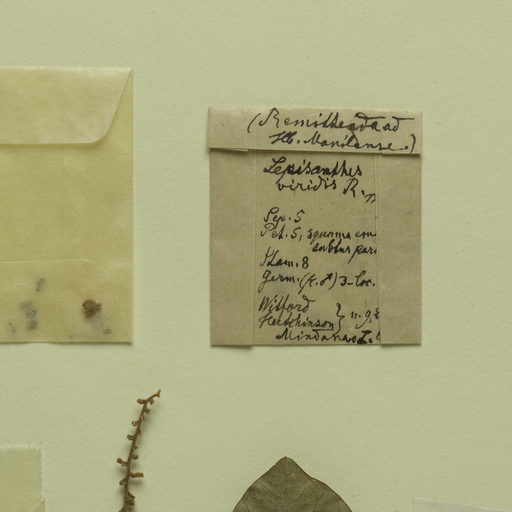 (Remitteada ad
Hb. Manilense.)
Lepisanthes
viridis R.
Sep. 5
Pet. 5, squama
subbus pari
Stam. 8
Germ. (fr. ♂) 3-loc.
Wilford
Hutchinson } n. 9.
Mindanao I.